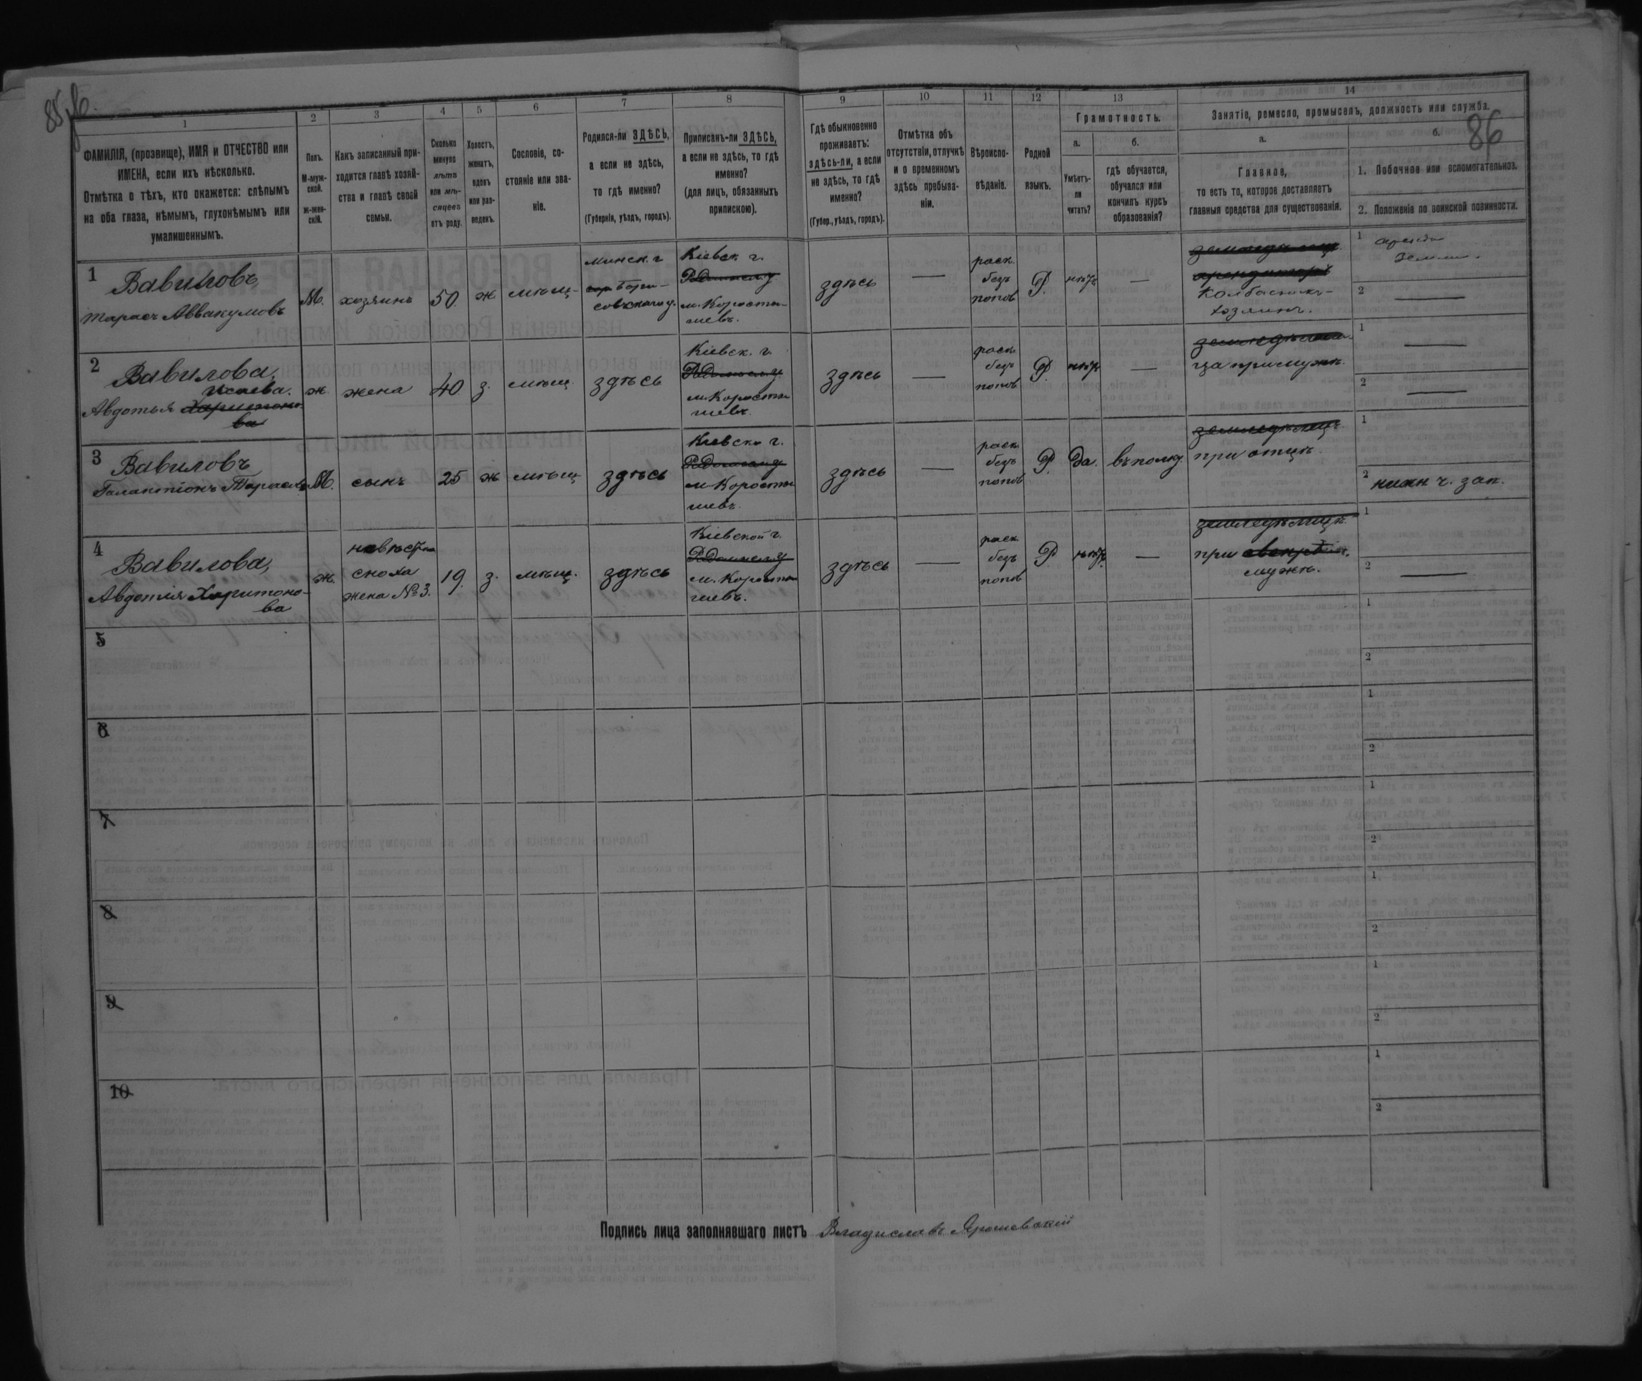 85об
86
1
2
3
4
5
6
7
8
9
10
11
12
13
14
ФАМИЛІЯ, (прозвище), ИМЯ и ОТЧЕСТВО или
ИМЕНА, если ихъ нѣсколько.
Отмѣтка о тѣхъ, кто окажется: слѣпымъ
на оба глаза, нѣмымъ, глухонѣмымъ или
умалишеннымъ.
Полъ.
М-муж-
ской.
Ж-жен-
скій.
Какъ записанный при-
ходится главѣ хозяй-
ства и главѣ своей
семьи.
Сколько
минуло
лѣтъ
или мѣ-
сяцевъ
отъ роду.
Холостъ,
женатъ,
вдовъ
или раз-
веденъ.
Сословіе, со-
стояніе или зва-
ніе.
Родился-ли ЗДѢСЬ,
а если не здѣсь,
то гдѣ именно?
(Губернія, уѣздъ, городъ).
Приписанъ-ли ЗДѢСЬ,
а если не здѣсь, то гдѣ
именно?
(для лицъ, обязанныхъ
припискою).
Гдѣ обыкновенно
проживаетъ:
здѣсь-ли, а если
не здѣсь, то гдѣ
именно?
(Губер., уѣздъ, городъ).
Отмѣтка объ
отсутствіи, отлучкѣ
и о временномъ
здѣсь пребыва-
ніи.
Вѣроиспо-
вѣданіе.
Родной
языкъ.
Грамотность.
а.
Умѣетъ-
ли
читать?
б.
гдѣ обучается,
обучался или
кончилъ курсъ
образованія?
Занятіе, ремесло, промыселъ, должность или служба.
а.
Главное,
то есть то, которое доставляетъ
главныя средства для существованія.
б.
1. Побочное или вспомогательное.
2. Положеніе по воинской повинности.
1
Вавиловъ
Тарасъ Аввакумовъ
М.
хозяинъ
50
ж
мѣщ.
Минск. г
Бори-
совскаго у.
Кіевск. г.
м. Коросты-
шевъ.
здѣсь
—
раск.
безъ
попов
Р.
нѣтъ
—
Колбасникъ-
хозяинъ.
1
аренда
земли.
2 —
2
Вавилова,
Исаева.
Авдотья Харитоно-
ва
ж
жена
40
з.
мѣщ.
здѣсь
Кіевск. г.
м. Коросты-
шевъ.
здѣсь
раск.
безъ
попов
Р.
нѣтъ
—
ца при мужѣ
1 —
2 —
3
Вавиловъ
Галактіонъ Тарасовъ
М.
сынъ
25
ж
мѣщ.
здѣсь
Кіевск. г.
м. Коросты-
шевъ.
здѣсь
—
раск.
безъ
попов
Р.
Да.
въ полку
при отцѣ.
1
2 нижн ч. зап.
4
Вавилова,
Авдотія Харитоно-
ва
ж
невѣстка
сноха
жена №3.
19
з.
мѣщ.
здѣсь
Кіевской г.
м. Коросты-
шевъ.
здѣсь
—
раск.
безъ
попов
Р
нѣтъ.
—
при
мужѣ.
1
2 —
5
1
2
6
1
2
7
1
2
8
1
2
9
1
2
10
1
2
Подпись лица заполнявшаго листъ Владиславъ Ярошевскій